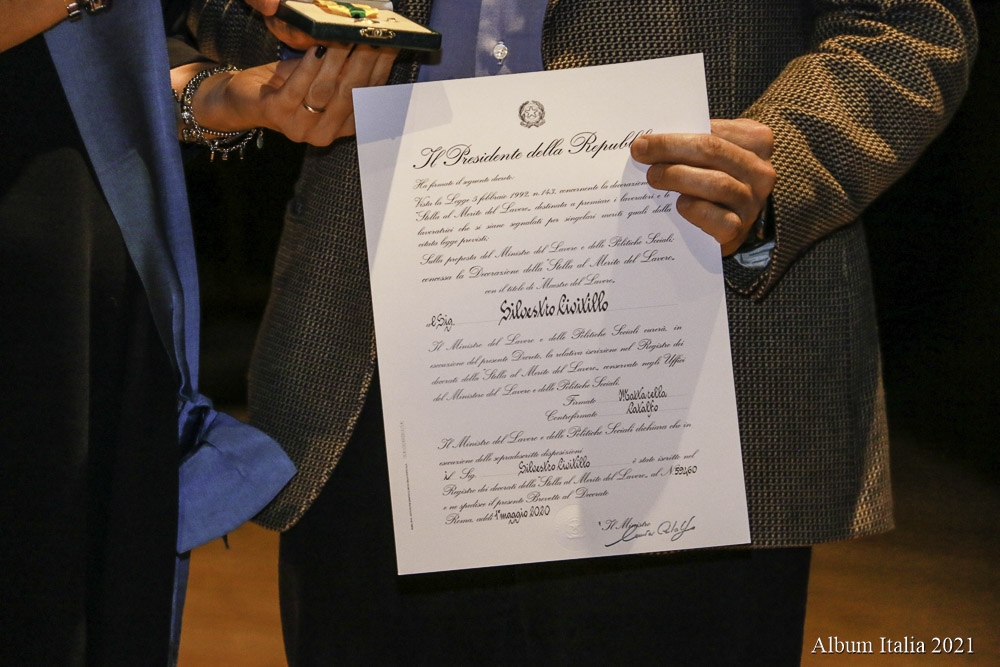 Il Presidente della Repubbl
Ha firmato il seguente decreto:
Vista la Legge 5 febbraio 1992, n. 143, concernente la decorazione
"Stella al Merito del Lavoro, destinata a premiare i lavoratori e le
lavoratrici che si siano segnalati per singolari meriti quali dalla
citata legge previsti;
Sulla proposta del Ministro del Lavoro e delle Politiche Sociali;
concessa la Decorazione della "Stella al Merito del Lavoro,
con il titolo di "Maestro del Lavoro,
al Sig. Silvestro Civitillo
Il Ministro del Lavoro e delle Politiche Sociali curerà, in
esecuzione del presente Decreto, la relativa iscrizione nel Registro dei
decorati della "Stella al Merito del Lavoro, conservato negli Uffici
del Ministero del Lavoro e delle Politiche Sociali.
Firmato Mattarella
Controfirmato Catalfo
Il Ministro del Lavoro e delle Politiche Sociali dichiara che in
esecuzione delle sopradescritte disposizioni
il Sig. Silvestro Civitillo è stato iscritto nel
Registro dei decorati della "Stella al Merito del Lavoro, al N. 59460
e ne spedisce il presente Brevetto al Decorato
Roma, addì 1° maggio 2020
Il Ministro
Album Italia 2021